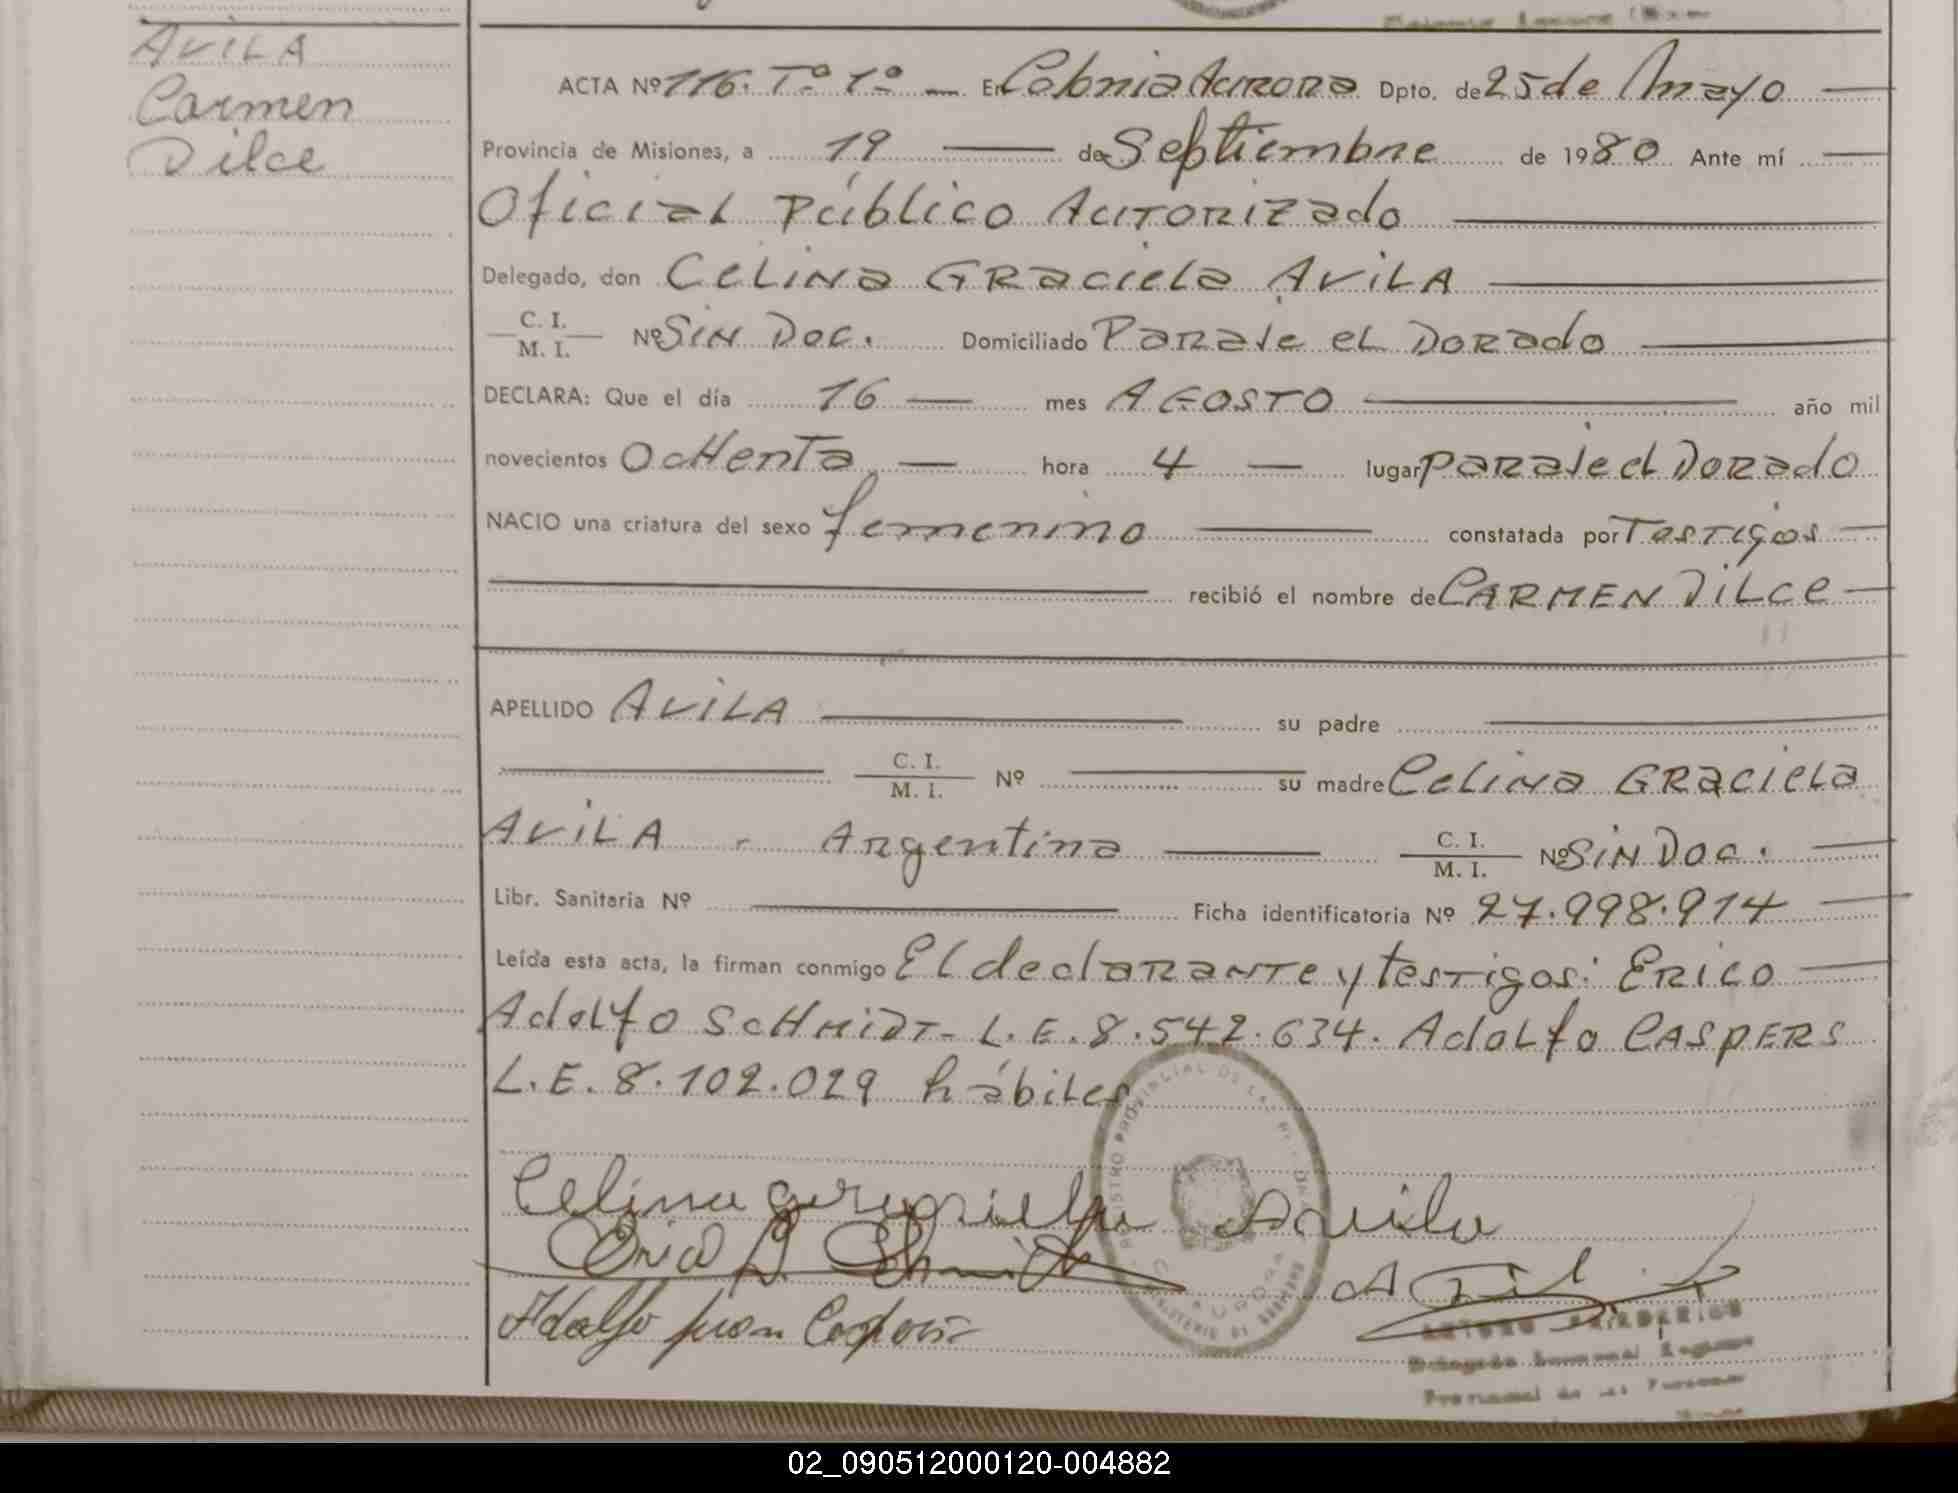 AVILA
Carmen
Dilce
ACTA Nº 116. Tº 1º — En Colonia Aurora Dpto. de 25 de Mayo —
Provincia de Misiones, a 19 — de Septiembre de 1980 Ante mí —
Oficial Público Autorizado —
Delegado, don Celina Graciela Avila —
C. I.
M. I. Nº Sin Doc. Domiciliado Paraje el Dorado —
DECLARA: Que el día 16 — mes Agosto — año mil
novecientos Ochenta — hora 4 — lugar paraje el Dorado
NACIO una criatura del sexo femenino — constatada por Testigos —
— recibió el nombre de CARMEN DILCE —
APELLIDO AVILA — su padre —
— C. I.
M. I. Nº — su madre Celina Graciela
AVILA - Argentina — C. I.
M. I. Nº Sin Doc. —
Libr. Sanitaria Nº — Ficha identificatoria Nº 27.998.914 —
Leída esta acta, la firman conmigo El declarante y testigos: Erico —
Adolfo Schmidt - L.E. 8.542.634. Adolfo Caspers
L.E. 8.102.029 hábiles
Celina Avila
Adolfo Juan
REGISTRO PROVINCIAL DE LAS
AURORA
MINISTERIO DE GOBIERNO
02_090512000120-004882